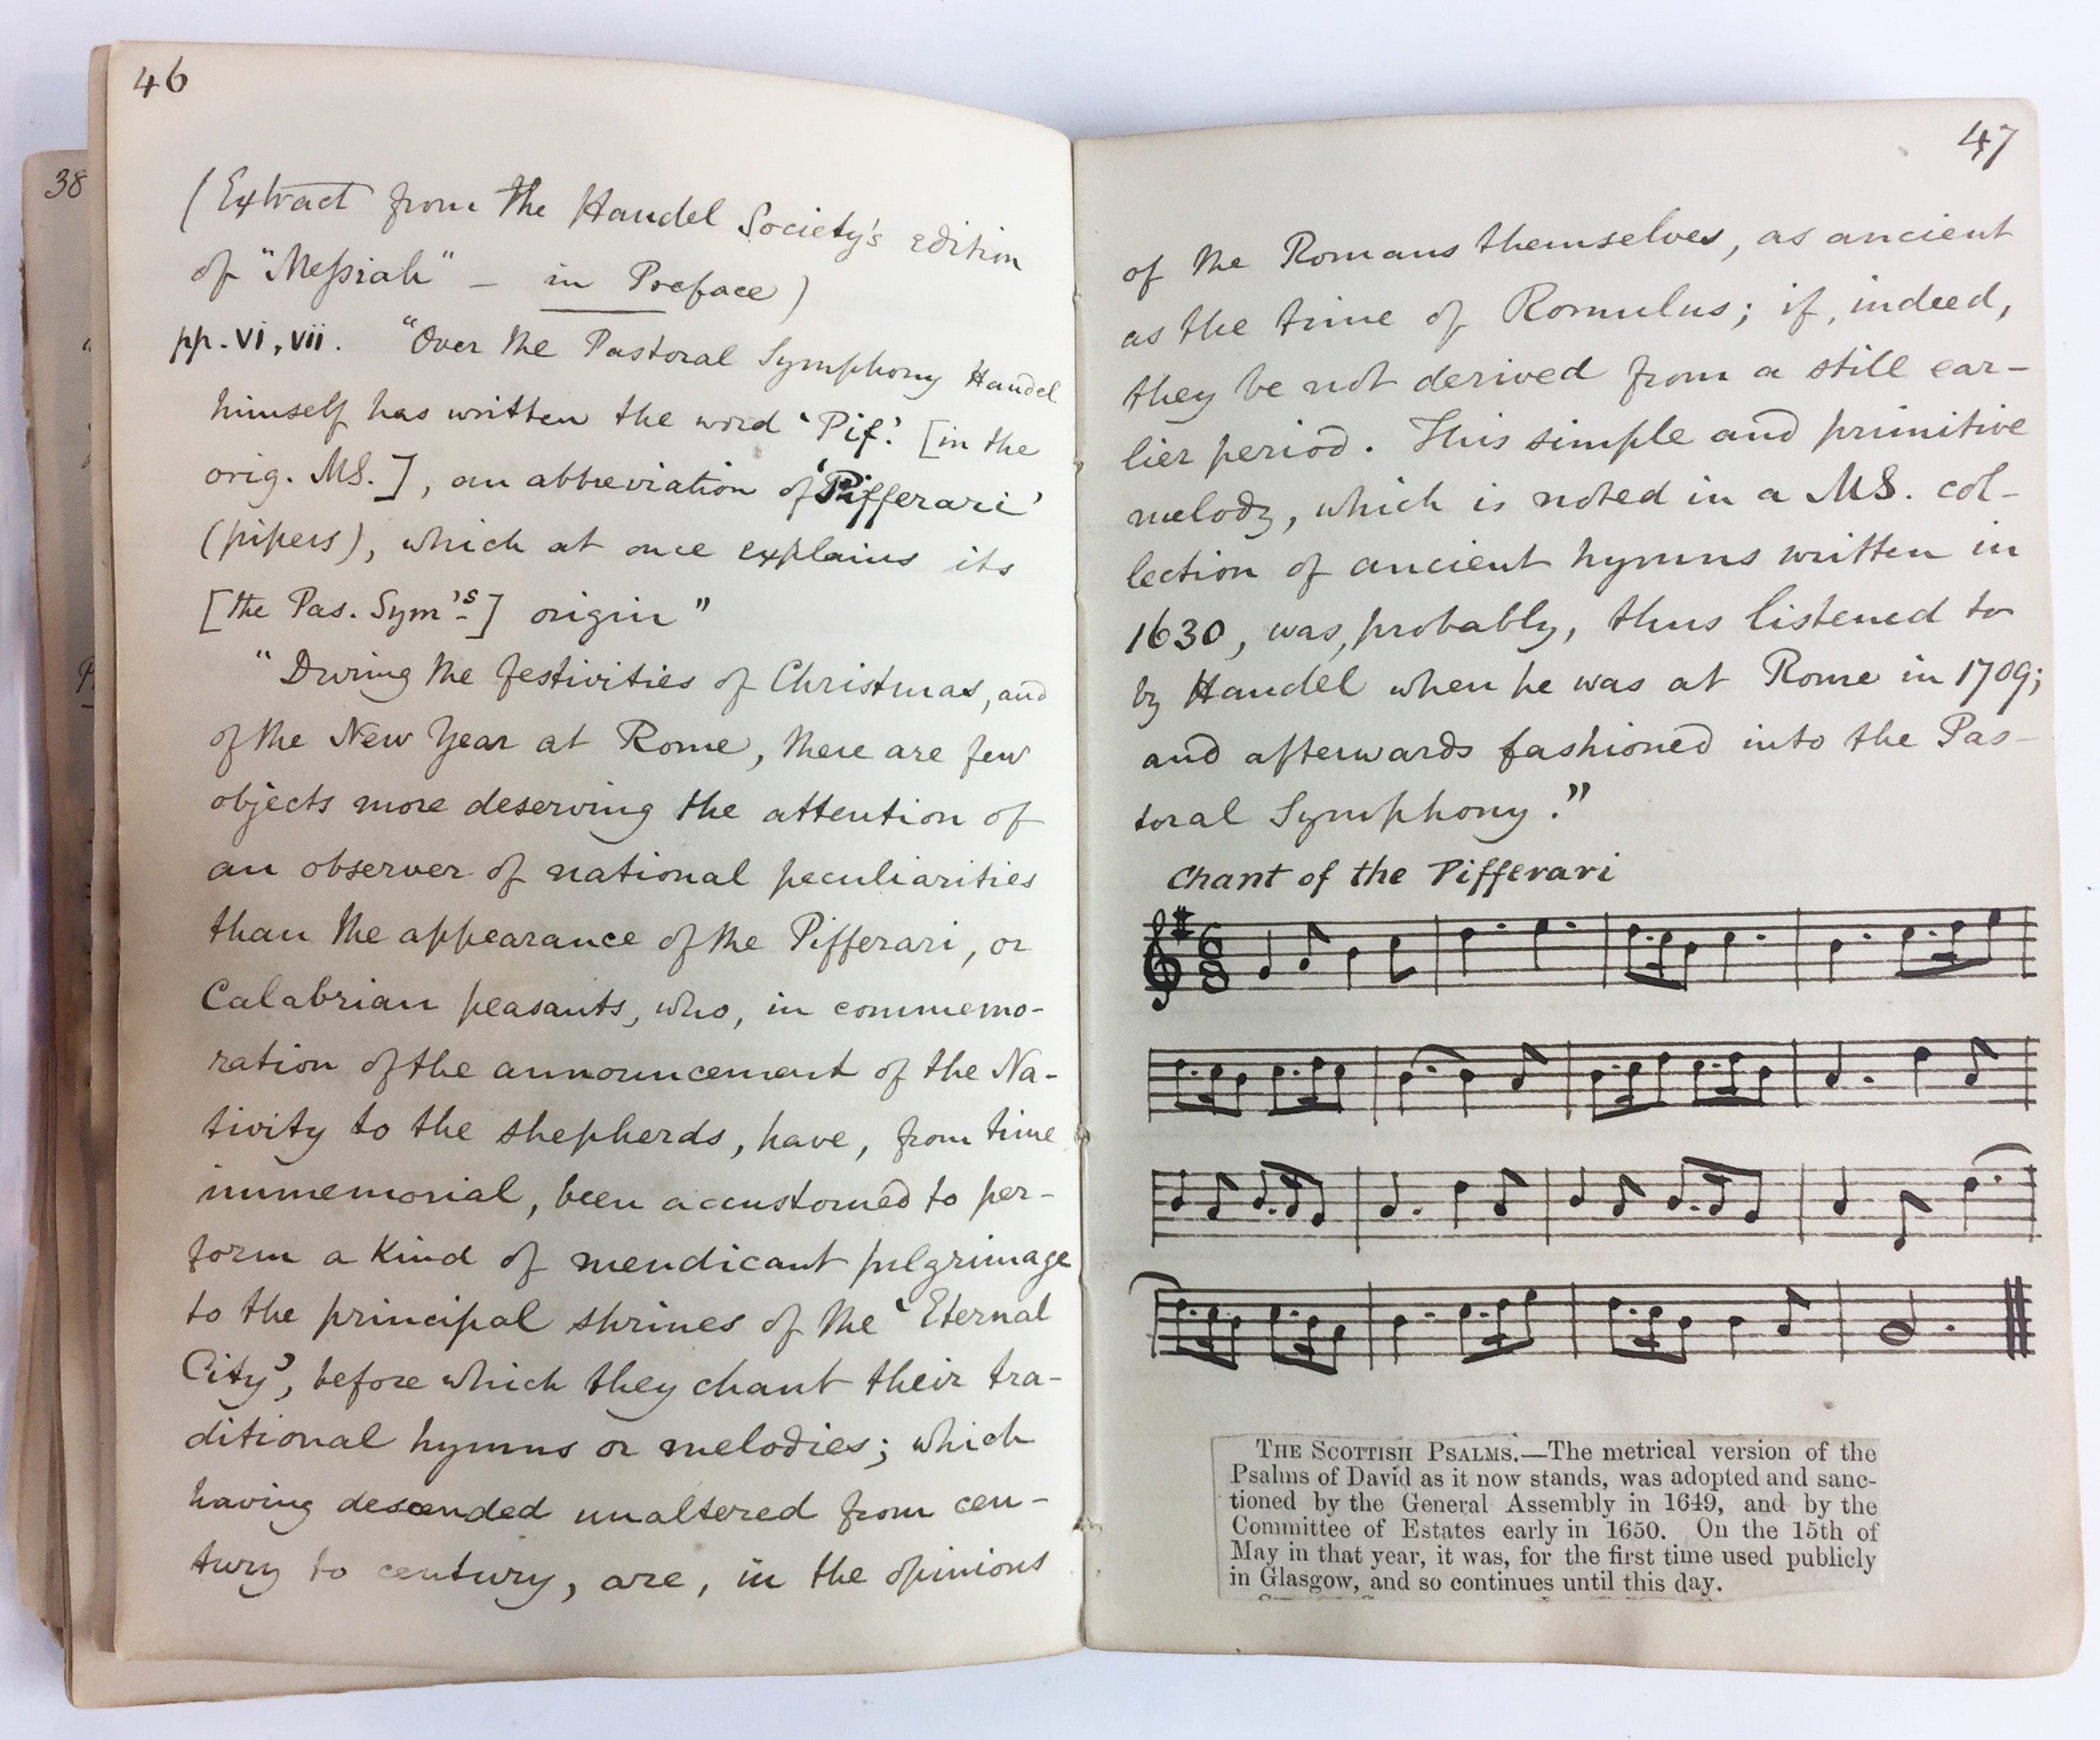 46
(Extract from the Handel Society's edition
of "Messiah" – in Preface)
pp. vi, vii. "Over the Pastoral Symphony Handel
himself has written the word 'Pif.' [in the
orig. MS.], an abbreviation of 'Pifferari'
(pipers), which at once explains its
[the Pas. Sym's] origin"
"During the festivities of Christmas, and
of the New Year at Rome, there are few
objects more deserving the attention of
an observer of national peculiarities
than the appearance of the Pifferari, or
Calabrian peasants, who, in commemo-
ration of the announcement of the Na-
tivity to the shepherds, have, from time
immemorial, been accustomed to per-
form a kind of mendicant pilgrimage
to the principal shrines of the 'Eternal
City', before which they chant their tra-
ditional hymns or melodies; which
having descended unaltered from cen-
tury to century, are, in the opinions
38
47
of the Romans themselves, as ancient
as the time of Romulus; if, indeed,
they be not derived from a still ear-
lier period. This simple and primitive
melody, which is noted in a MS. col-
lection of ancient hymns written in
1630, was, probably, thus listened to
by Handel when he was at Rome in 1709;
and afterwards fashioned into the Pas-
toral Symphony."
Chant of the Pifferari
6
8
THE SCOTTISH PSALMS.—The metrical version of the
Psalms of David as it now stands, was adopted and sanc-
tioned by the General Assembly in 1649, and by the
Committee of Estates early in 1650. On the 15th of
May in that year, it was, for the first time used publicly
in Glasgow, and so continues until this day.